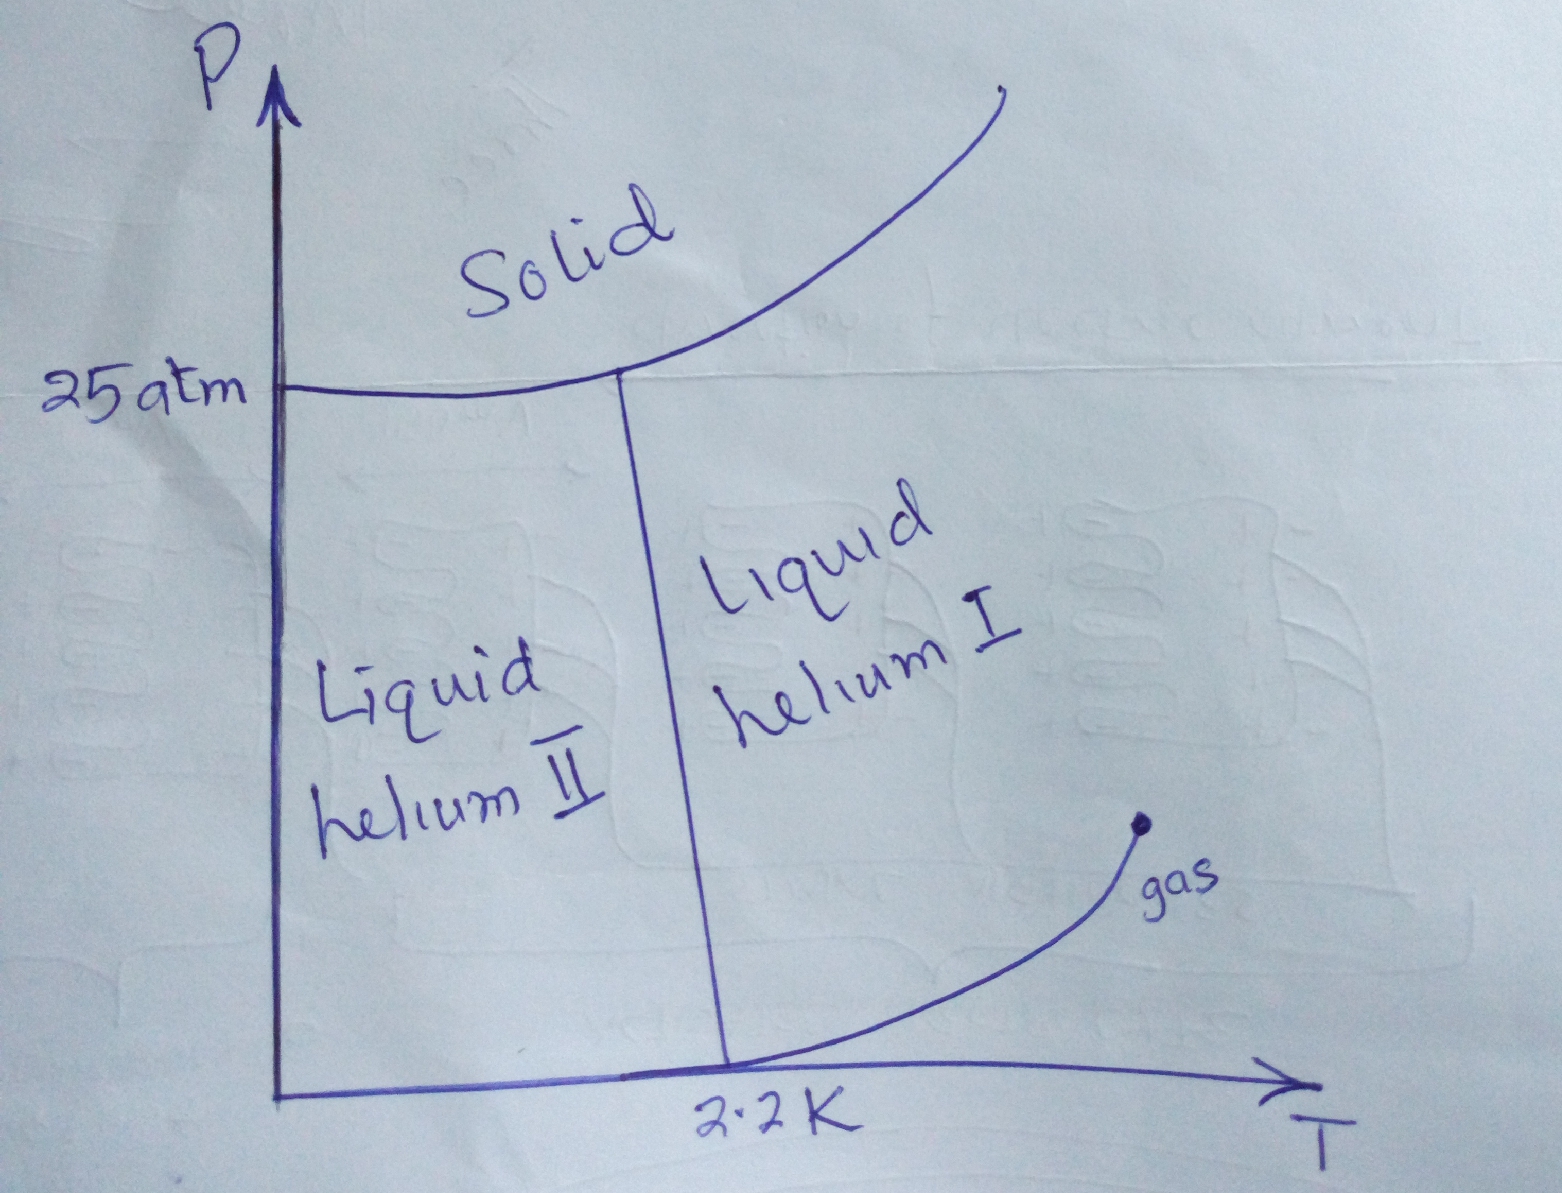 P
Solid
25 atm
Liquid
helium I
Liquid
helium II
gas
2.2 K
T